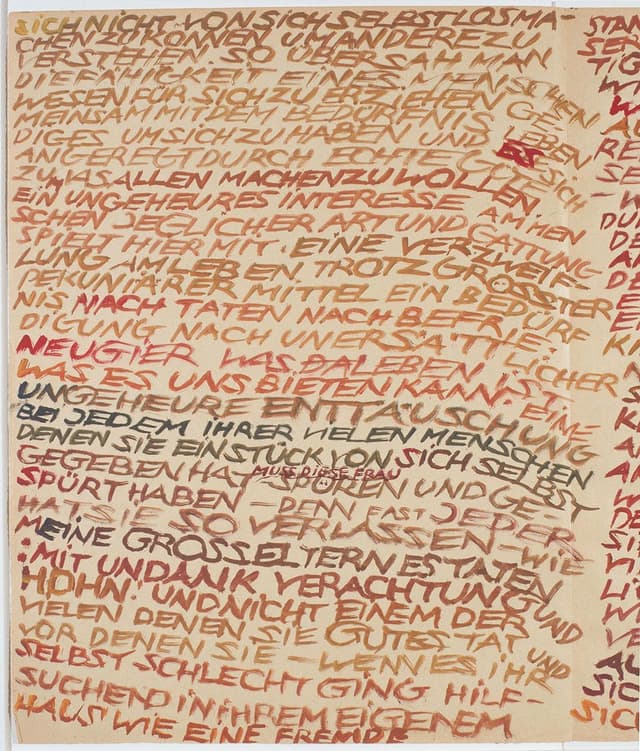 SICH NICHT VON SICH SELBST LOSMA-
CHEN ZU KÖNNEN UM ANDERE ZU
VERSTEHEN. SO ÜBERSAH MAN
DIE FÄHIGKEIT EINES MENSCHEN
WESEN FÜR SICH ZU ERZIEHEN GE
MEINSAM MIT DEM BEDÜRFNIS LEBEN
DIGES UM SICH ZU HABEN UND ES SICH
ANGEREGT DURCH ECHTE GÜTE
ZU WAS ALLEN MACHEN ZU WOLLEN
EIN UNGEHEURES INTERESSE AM MEN
SCHEN JEGLICHER ART UND GATTUNG
SPIELT HIER MIT. EINE VERZWEIF-
LUNG AM LEBEN TROTZ GRÖSSTER
PEKUNIÄRER MITTEL EIN BEDÜRF
NIS NACH TATEN NACH BEFRIE-
DIGUNG NACH UNERSÄTTLICHER
NEUGIER WAS DA LEBEN IST
WAS ES UNS BIETEN KANN. EINE
UNGEHEURE ENTTÄUSCHUNG
BEI JEDEM IHRER VIELEN MENSCHEN
DENEN SIE EIN STÜCK VON SICH SELBST
GEGEBEN HAT STÖREN UND GE-
MUSS DIESE FRAU
SPÜRT HABEN – DENN FAST JEDER
HAT SIE SO VERLASSEN – WIE
MEINE GROSSELTERN ES TATEN
: MIT UNDANK VERACHTUNG UND
HOHN. UND NICHT EINEM DER
VIELEN DENEN SIE GUTES TAT UND
VOR DENEN SIE – WENN ES IHR
SELBST SCHLECHT GING HILF-
SUCHEND IN IHREM EIGENEM
HAUS WIE EINE FREMDE